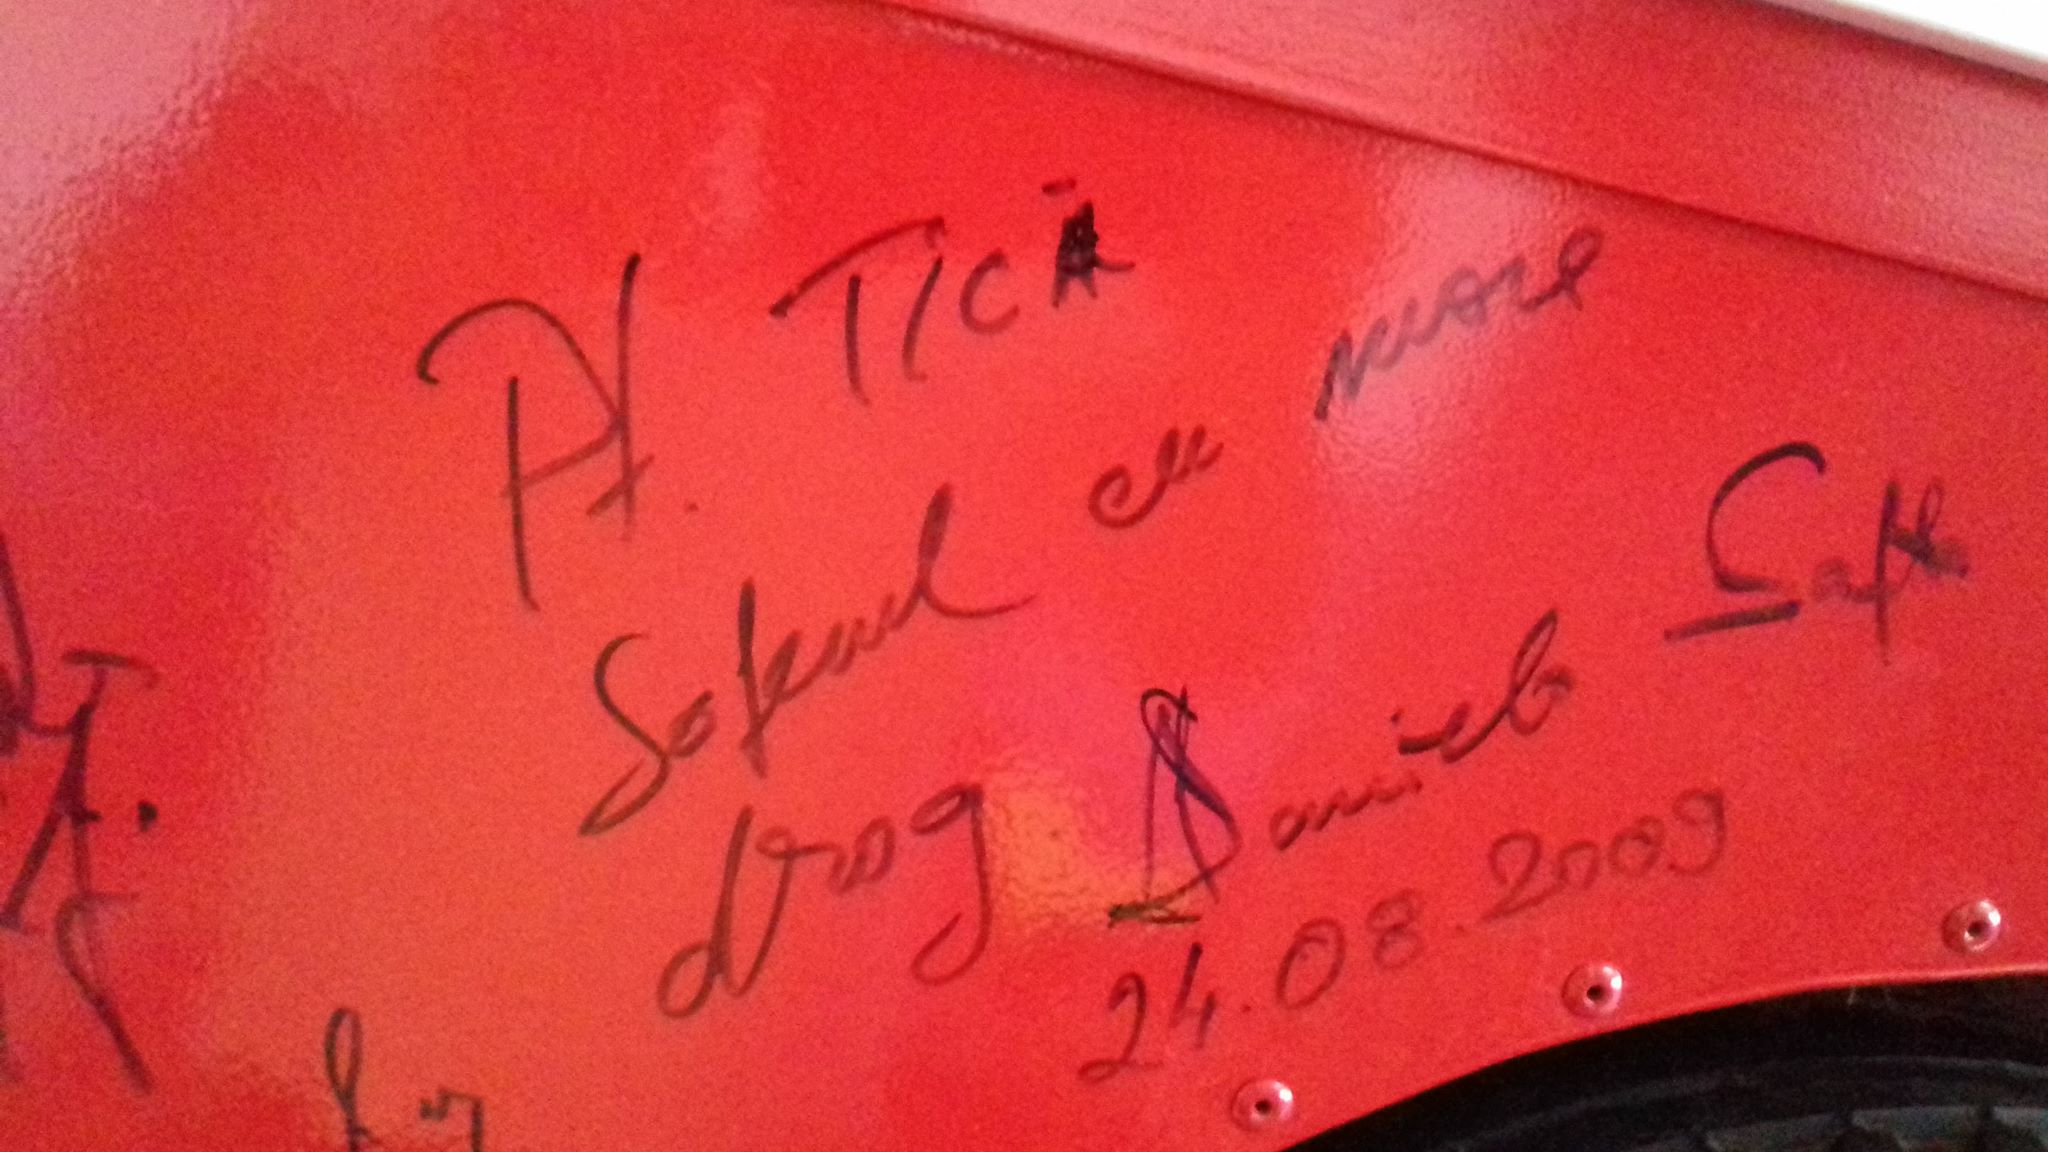 Pt. TICĂ
Soferul cu mare
drag Daniela
24.08.2009